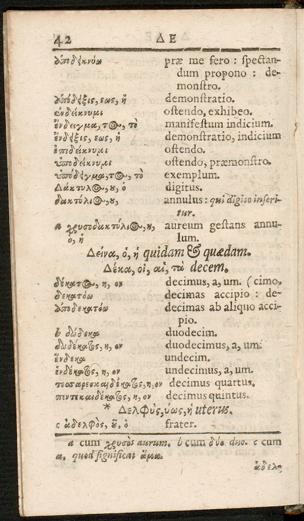 42 ΔΕ
ἀποδεκνύω præ me fero : spectan-
dum propono : de-
monstro.
ἀπόδειξις, εως, ἡ demonstratio.
ἐνδείκνυμι ostendo, exhibeo.
ἔνδειγμα, τος, τὸ manifestum indicium.
ἔνδειξις, εως, ἡ demonstratio, indicium
ἐπιδείκνυμι ostendo.
ὑποδείκνυμι ostendo, præmonstro.
ὑπόδειγμα, τος, τὸ exemplum.
Δάκτυλος, ου, ὁ digitus.
δακτύλιος, ου, annulus : qui digito inseri-
tur.
a χρυσοδακτύλιος, ου, aureum gestans annu-
ὁ, ἡ lum.
Δεῖνα, ὁ, ἡ quidam & quædam.
Δέκα, οἱ, αἱ, τὰ decem.
δέκατος, η, ον decimus, a, um. (cimo.
δεκατόω decimas accipio : de-
ἀποδεκατόω decimas ab aliquo acci-
pio.
b δώδεκα duodecim.
δωδέκατος, η, ον duodecimus, a, um.
ἕνδεκα undecim.
ἑνδέκατος, η, ον undecimus, a, um.
τεσσαρεσκαιδέκατος, η, ον decimus quartus.
πεντεκαιδέκατος, η, ον decimus quintus.
* Δελφὺς, ύος, ἡ uterus.
c ἀδελφὸς, οῦ, ὁ frater.
a cum χρυσὸς aurum. b cum δύο duo. c cum
α, quod significat ἅμα.
ἀδελ